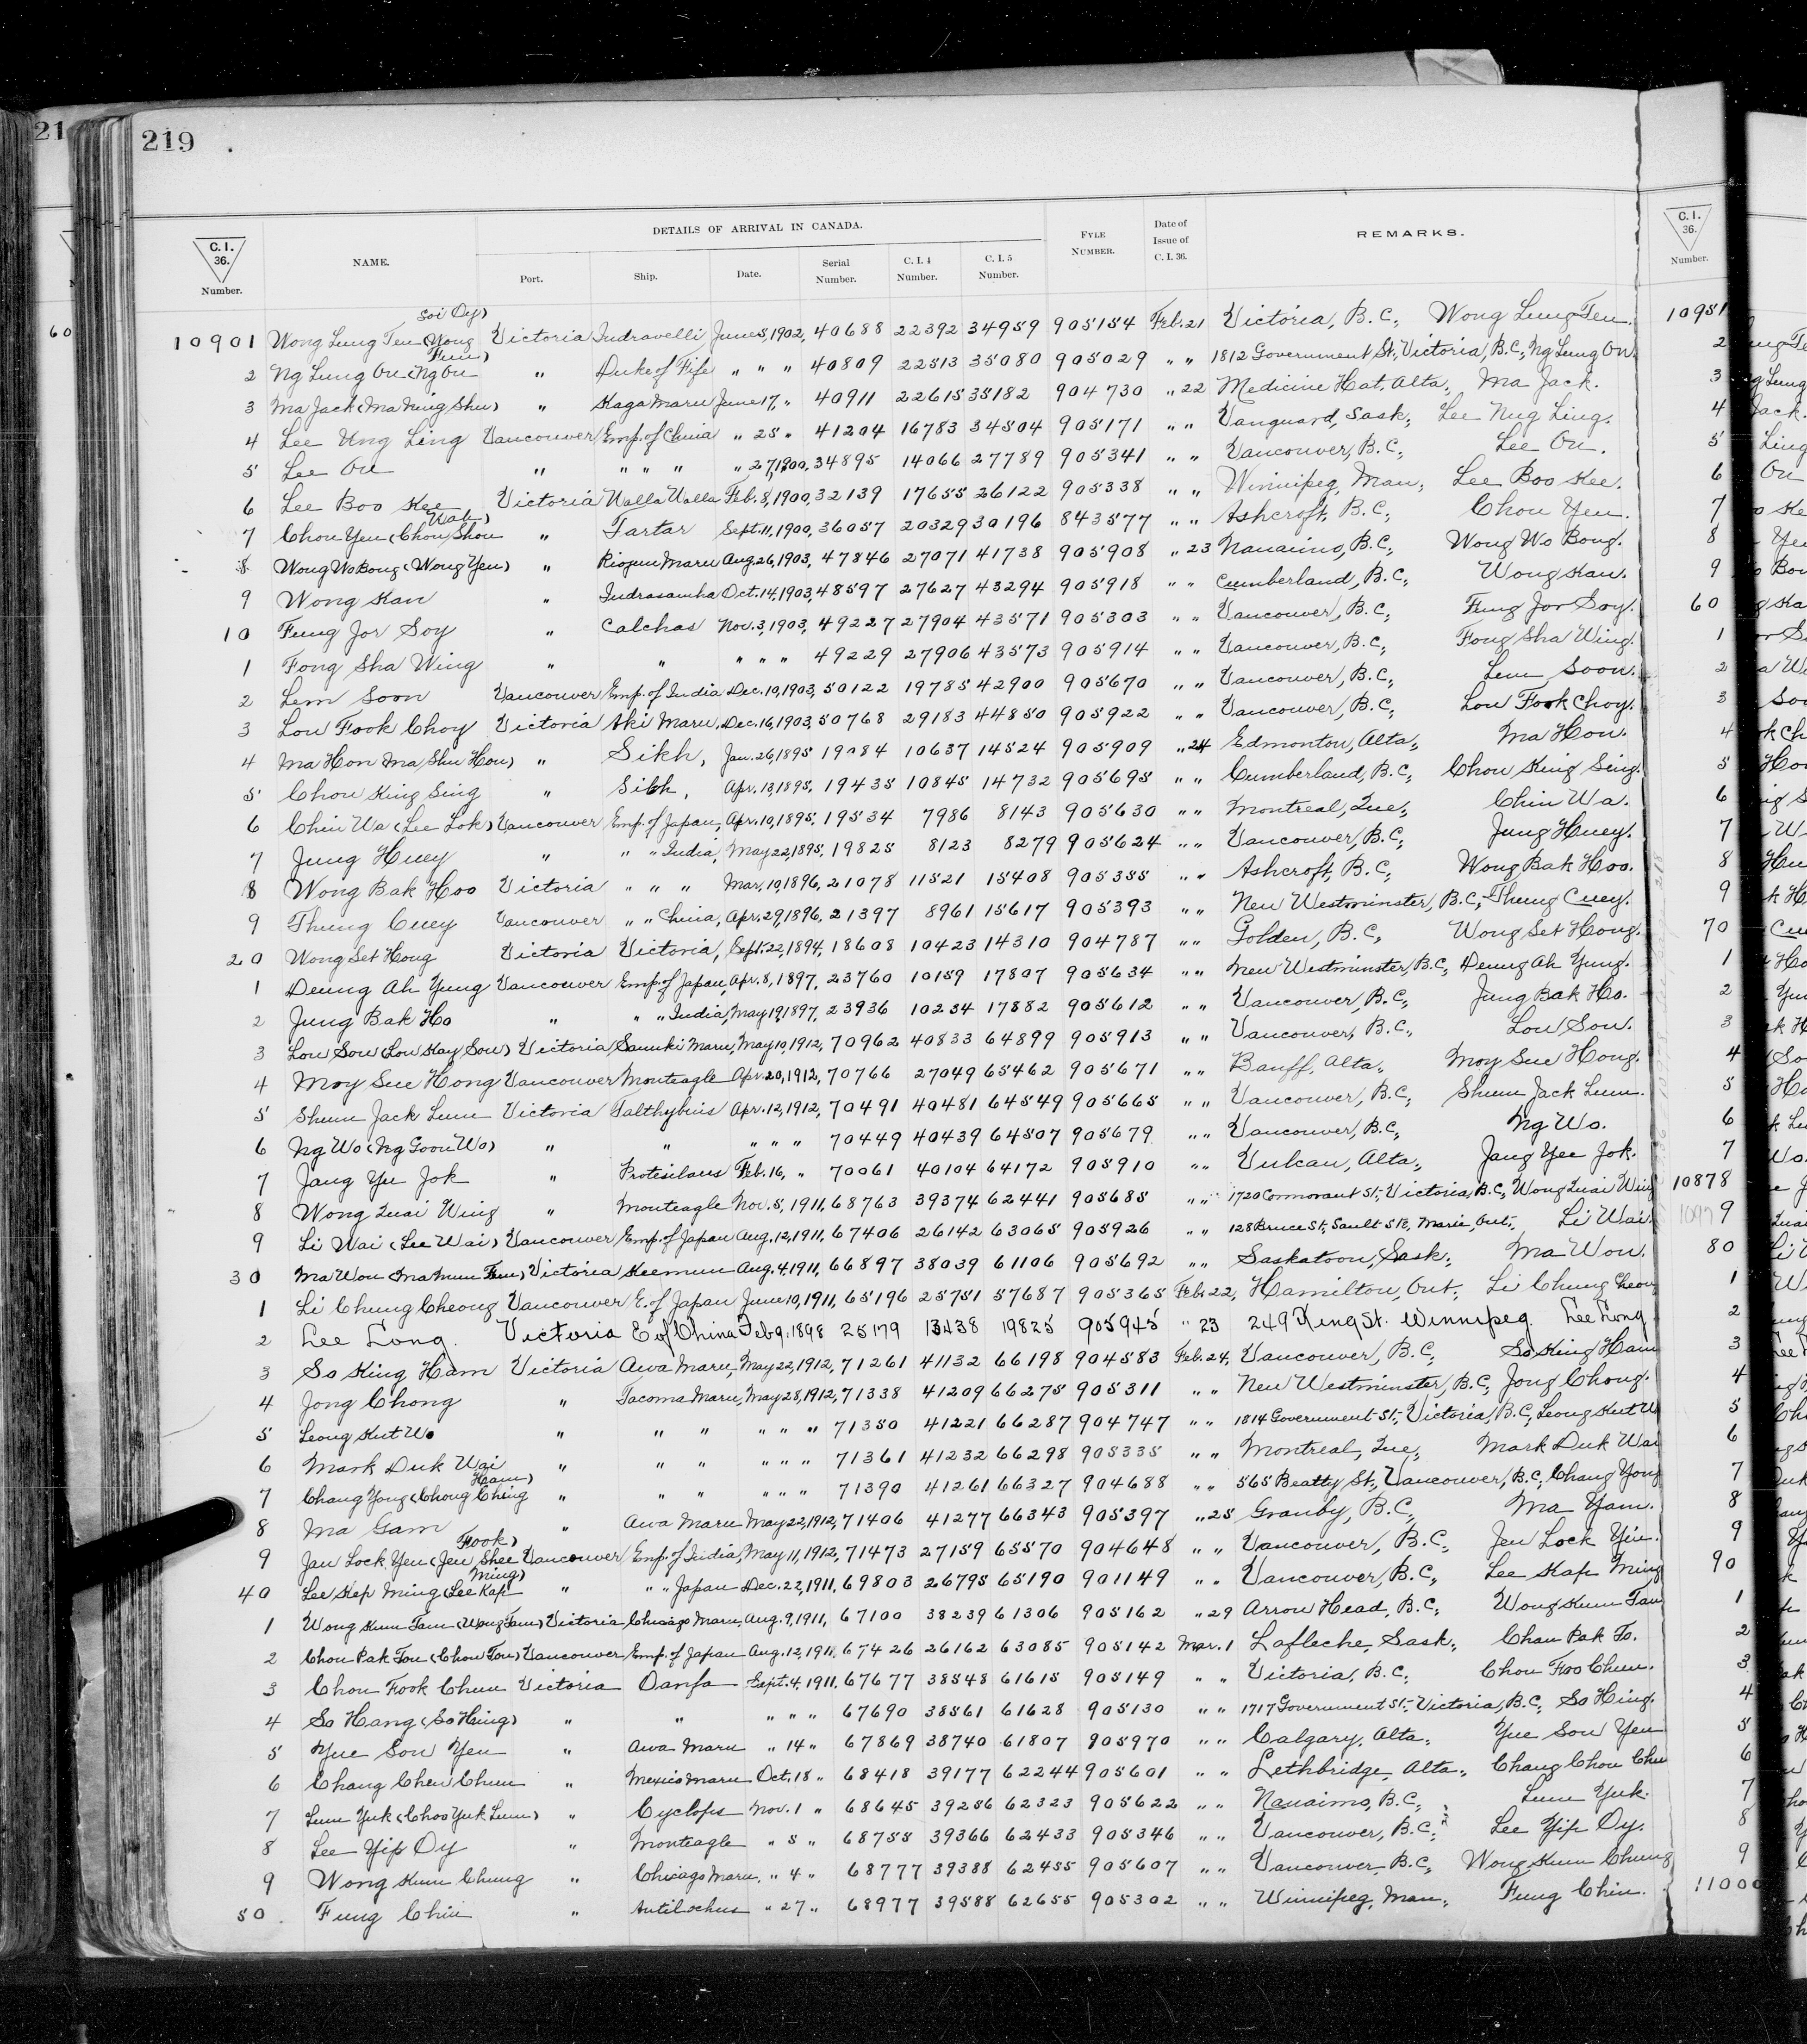 21
219
DETAILS OF ARRIVAL IN CANADA.
C. I. 36. Number. NAME. Port. Ship. Date. Serial Number. C. I. 4 Number. C. I. 5 Number. FYLE NUMBER. Date of Issue of C. I. 36. REMARKS. C. I. 36. Number.
Soi Oy)
10901 Wong Lung Ten (Wong Victoria Indravelli June 5, 1902, 40688 22392 34959 905154 Feb. 21 Victoria, B.C., Wong Lung Ten. 10951
Fun)
2 Ng Lung On (Ng On " Duke of Fife " " " 40809 22513 35080 905029 " " 1812 Government St., Victoria, B.C., Ng Lung On. 2
3 Ma Jack (Ma Ning Shu) " Kaga Maru June 17, " 40911 22615 35182 904730 " 22 Medicine Hat, Alta., Ma Jack. 3
4 Lee Ung Ling Vancouver Emp. of China " 25 " 41204 16783 34504 905171 " " Vanguard, Sask., Lee Nug Ling. 4
5 Lee On " " " " " 27, 1900, 34895 14066 27789 905341 " " Vancouver, B.C., Lee On. 5
6 Lee Boo Kee Victoria Walla Walla Feb. 8, 1900, 32139 17655 26122 905338 " " Winnipeg, Man., Lee Boo Kee. 6
Wah)
7 Chou Yen (Chou Shou " Tartar Sept. 11, 1900, 36057 20329 30196 843577 " " Ashcroft, B.C., Chou Yen. 7
8 Wong Wo Bong (Wong Yen) " Riojun Maru Aug. 26, 1903, 47846 27071 41738 905908 " 23 Nanaimo, B.C., Wong Wo Bong. 8
9 Wong Kan " Indrasamha Oct. 14, 1903, 48597 27627 43294 905918 " " Cumberland, B.C., Wong Kan. 9
10 Fung Jor Soy " Calchas Nov. 3, 1903, 49227 27904 43571 905303 " " Vancouver, B.C., Fung Jor Soy. 60
1 Fong Sha Wing " " " " " 49229 27906 43573 905914 " " Vancouver, B.C., Fong Sha Wing. 1
2 Lem Soon Vancouver Emp. of India Dec. 10, 1903, 50122 19785 42900 905670 " " Vancouver, B.C., Lem Soon. 2
3 Lou Fook Choy Victoria Aki Maru, Dec. 16, 1903, 50768 29183 44850 905922 " " Vancouver, B.C., Lou Fook Choy. 3
4 Ma Hon Ma Shu Hon) " Sikh, Jan. 26, 1895 19084 10637 14524 905909 " 24 Edmonton, Alta., Ma Hon. 4
5 Chou King Sing " Sikh, Apr. 13, 1895, 19435 10845 14732 905695 " " Cumberland, B.C., Chou King Sing. 5
6 Chin Wa (Lee Lok) Vancouver Emp. of Japan, Apr. 10, 1895, 19534 7986 8143 905630 " " Montreal, Que., Chin Wa. 6
7 Jung Huey " " " India, May 22, 1895, 19825 8123 8279 905624 " " Vancouver, B.C., Jung Huey. 7
8 Wong Bak Hoo Victoria " " " Mar. 10, 1896, 21078 11521 15408 905355 " " Ashcroft, B.C., Wong Bak Hoo. 8
9 Thung Cuey Vancouver " " China, Apr. 29, 1896, 21397 8961 15617 905393 " " New Westminster, B.C., Thung Cuey. 9
20 Wong Set Hong Victoria Victoria, Sept. 22, 1894, 18608 10423 14310 904787 " " Golden, B.C., Wong Set Hong. 70
1 Deung Ah Yung Vancouver Emp. of Japan, Apr. 8, 1897, 23760 10159 17807 905634 " " New Westminster, B.C., Deung Ah Yung. 1
2 Jung Bak Ho " " " India, May 19, 1897, 23936 10234 17882 905612 " " Vancouver, B.C., Jung Bak Ho. 2
3 Lou Sou (Lou Kay Sou) Victoria Sanuki Maru, May 10, 1912, 70962 40833 64899 905913 " " Vancouver, B.C., Lou Sou. 3
4 Moy Sue Hong Vancouver Monteagle Apr. 20, 1912, 70766 27049 65462 905671 " " Banff, Alta., Moy Sue Hong. 4
5 Shum Jack Lum Victoria Talthybius Apr. 12, 1912, 70491 40481 64549 905665 " " Vancouver, B.C., Shum Jack Lum. 5
6 Ng Wo (Ng Goon Wo) " " " " " 70449 40439 64507 905679 " " Vancouver, B.C., Ng Wo. 6
7 Jang Yee Jok " Protesilaus Feb. 16, " 70061 40104 64172 905910 " " Vulcan, Alta., Jang Yee Jok. 7
8 Wong Quai Wing " Monteagle Nov. 5, 1911, 68763 39374 62441 905685 " " 1720 Cormorant St., Victoria, B.C., Wong Quai Wing 10878
9 Li Wai (Lee Wai) Vancouver Emp. of Japan Aug. 12, 1911, 67406 26142 63065 905926 " " 128 Bruce St., Sault Ste. Marie, Ont., Li Wai. 9
30 Ma Won (Ma Mun Fun) Victoria Keemun Aug. 4, 1911, 66897 38039 61106 905692 " " Saskatoon, Sask., Ma Won. 80
1 Li Chung Cheong Vancouver E. of Japan June 10, 1911, 65196 25751 57687 905365 Feb. 22, Hamilton, Ont., Li Chung Cheong 1
2 Lee Long. Victoria E of China Feb 9, 1898 25179 13438 19825 905945 " 23 249 King St. Winnipeg. Lee Long 2
3 So King Ham Victoria Awa Maru, May 22, 1912, 71261 41132 66198 904583 Feb. 24, Vancouver, B.C., So King Ham 3
4 Jong Chong " Tacoma Maru, May 28, 1912, 71338 41209 66275 905311 " " New Westminster, B.C., Jong Chong. 4
5 Leong Kut Wo " " " " " " 71350 41221 66287 904747 " " 1814 Government St., Victoria, B.C., Leong Kut W 5
6 Mark Duk Wai " " " " " " 71361 41232 66298 905335 " " Montreal, Que., Mark Duk Wai 6
Ham)
7 Chang Yong (Chong Ching " " " " " " 71390 41261 66327 904688 " " 565 Beatty St., Vancouver, B.C., Chang Yong 7
8 Ma Gam " Awa Maru May 22, 1912, 71406 41277 66343 905397 " 25 Granby, B.C., Ma Yam. 8
Fook)
9 Jan Lock Yen (Jen Shee Vancouver Emp. of India, May 11, 1912, 71473 27159 65570 904648 " " Vancouver, B.C., Jen Lock Yin. 9
Ming)
40 Lee Kep Ming (Lee Kap " " " Japan Dec. 22, 1911, 69803 26795 65190 901149 " " Vancouver, B.C., Lee Kap Ming 90
1 Wong Kum Tam (Wong Tam) Victoria Chicago Maru, Aug. 9, 1911, 67100 38239 61306 905162 " 29 Arrow Head, B.C., Wong Kum Tam 1
2 Chou Pak Tou (Chou Tou) Vancouver Emp. of Japan Aug. 12, 1911, 67426 26162 63085 905142 Mar. 1 Lafleche, Sask., Chau Pak To. 2
3 Chou Fook Chun Victoria Oanfa Sept. 4, 1911, 67677 38548 61615 905149 " " Victoria, B.C., Chou Foo Chun. 3
4 So Hang (So Hing) " " " " " 67690 38561 61628 905130 " " 1717 Government St., Victoria, B.C., So Hing. 4
5 Yue Sou Yen " Awa Maru " 14 " 67869 38740 61807 905970 " " Calgary, Alta., Yue Sou Yen 5
6 Chang Chen Chun " Mexico Maru Oct. 18 " 68418 39177 62244 905601 " " Lethbridge, Alta., Chang Chou Chu 6
7 Lum Yuk (Choo Yuk Lum) " Cyclops Nov. 1 " 68645 39256 62323 905622 " " Nanaimo, B.C., Lum Yuk. 7
8 Lee Yip Oy " Monteagle " 5 " 68755 39366 62433 905346 " " Vancouver, B.C., Lee Yip Oy. 8
9 Wong Kum Chung " Chicago Maru, " 4 " 68777 39388 62455 905607 " " Vancouver, B.C., Wong Kum Chung 9
50 Fung Chin " Antilochus " 27 " 68977 39588 62655 905302 " " Winnipeg, Man., Fung Chin. 11000